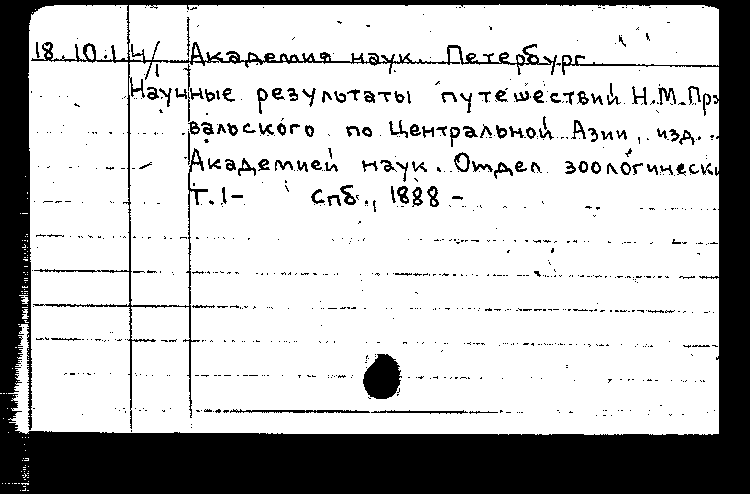 18.10.1.4/1 Академия наук. Петербург
Научные результаты путешествий Н.М.Прж
вальского по Центральной Азии, изд. ..
Академией наук. Отдел зоологически
Т.1- Спб., 1888 -